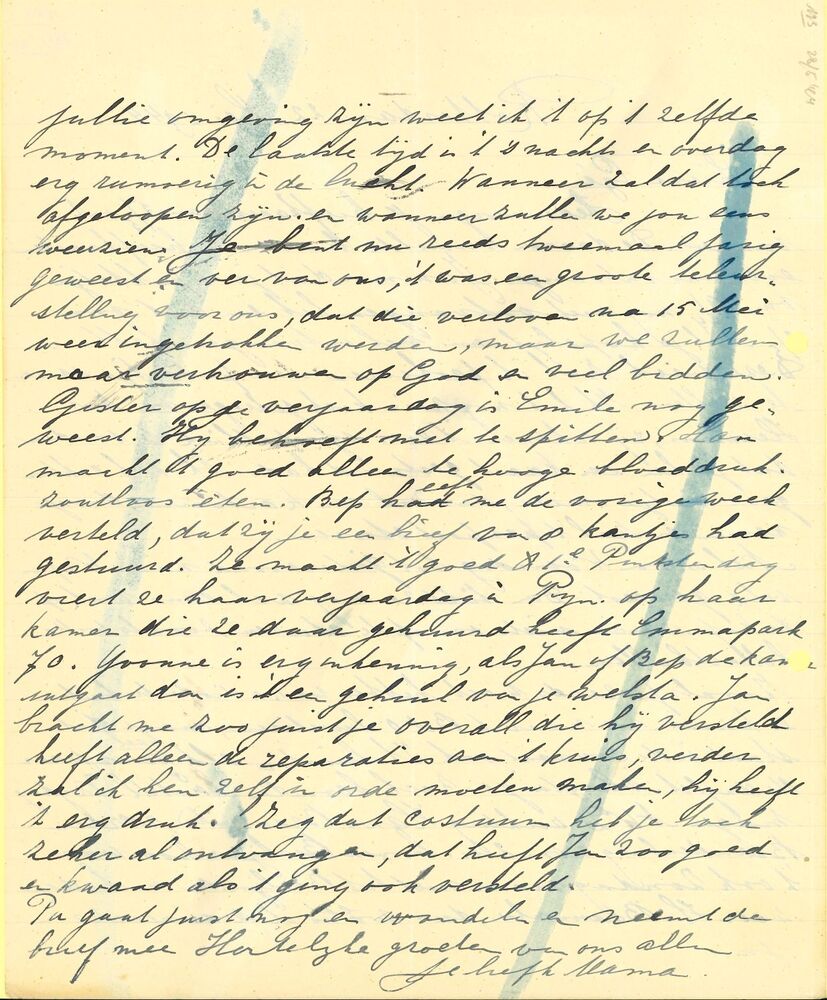 jullie omgeving zijn weet ik 't op 't zelfde
moment. De laatste tijd is 't 's nachts en overdag
erg rumoerig in de lucht. Wanneer zal dat toch
afgeloopen zijn. en wanneer zullen we jou eens
weerzien. Je bent nu reeds tweemaal jarig
geweest en ver van ons, 't was een groote teleur-
stelling voor ons, dat die verloven na 15 Mei
weer ingetrokken werden, maar we zullen
maar vertrouwen op God en veel bidden.
Gister op je verjaardag is Emile nog ge-
weest. Hij behoeft niet te spitten. Han
maakt 't goed alleen te hooge bloeddruk.
Zoutloos eten. Bep heeft me de vorige week
verteld, dat zij je een brief van 8 kantjes had
gestuurd. Ze maakt 't goed & 1e Pinksterdag
viert ze haar verjaardag in Rijn. op haar
kamer die ze daar gehuurd heeft Emmapark
70. Yvonne is erg eenkennig, als Jan of Bep de kamer
uitgaat dan is 't een gehuil van je welsta. Jan
bracht me zoo juist je overall die hij versteld
heeft alleen de reparaties aan 't kruis, verder
zal ik hen zelf in orde moeten maken, hij heeft
't erg druk. Zeg dat costuum heb je toch
zeker al ontvangen, dat heeft Jan zoo goed
en kwaad als 't ging ook versteld.
Pa gaat juist nog en wandelen en neemt de
brief mee Hartelijke groeten van ons allen
Je liefh Mama.